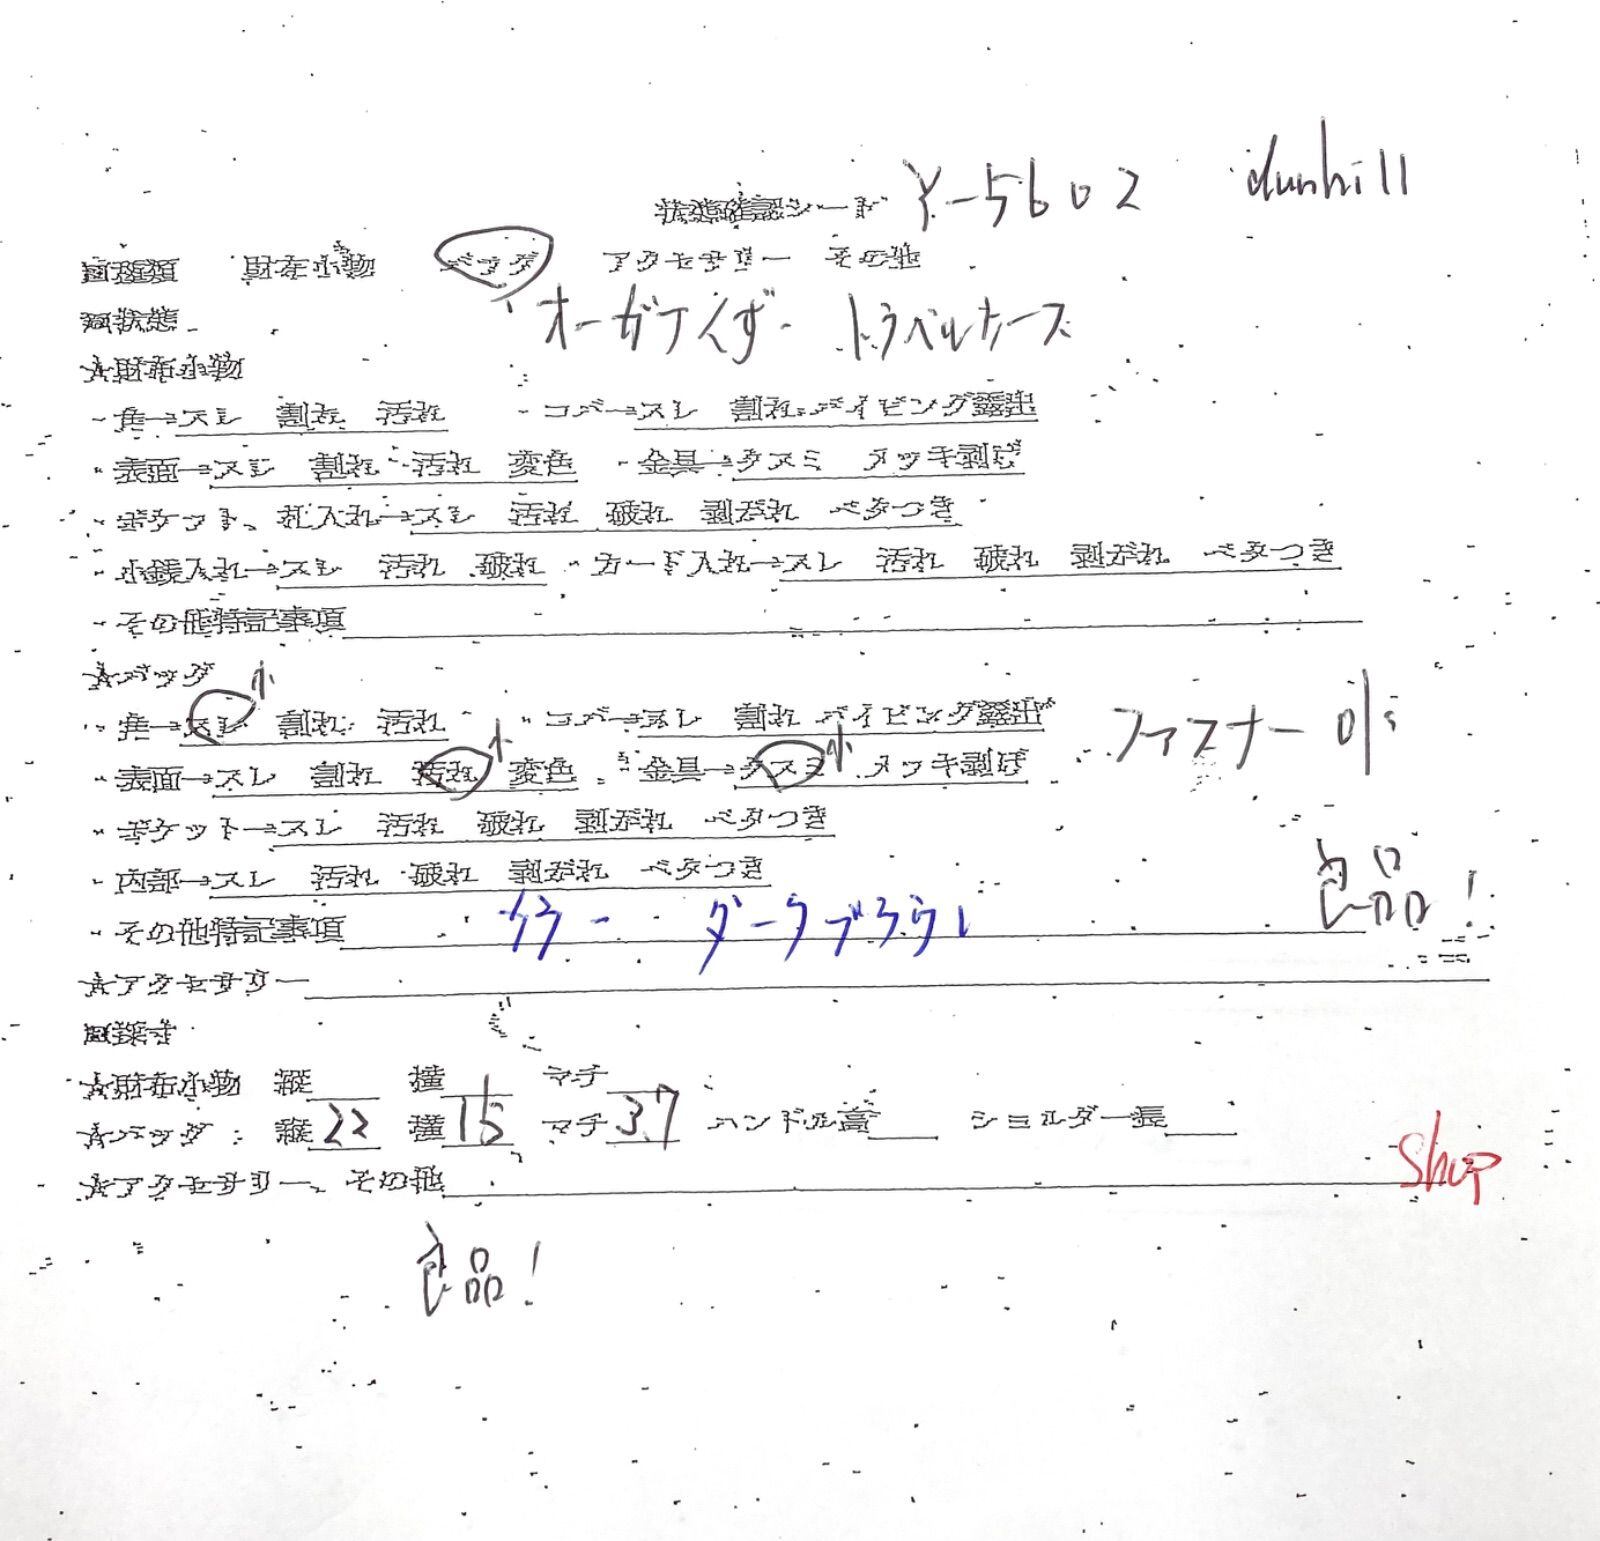 状態確認シート Y-5602 dunhill
■種類 財布小物 バッグ アクセサリー その他
■状態 オーガナイザー トラベルケース
☆財布小物
・角→スレ 割れ 汚れ ・コバ→スレ 割れ パイピング露出
・表面→スレ 割れ 汚れ 変色 ・金具→クスミ メッキ剥げ
・ポケット、札入れ→スレ 汚れ 破れ 剥がれ ベタつき
・小銭入れ→スレ 汚れ 破れ ・カード入れ→スレ 汚れ 破れ 剥がれ ベタつき
・その他特記事項
☆バッグ
・角→スレ 小 割れ 汚れ ・コバ→スレ 割れ パイピング露出 ファスナー
・表面→スレ 割れ 汚れ 小 変色 ・金具→クスミ 小 メッキ剥げ
・ポケット→スレ 汚れ 破れ 剥がれ ベタつき
・内部→スレ 汚れ 破れ 剥がれ ベタつき 良品!
・その他特記事項 ダークブラウン
☆アクセサリー
■採寸
☆財布小物 縦 横 マチ
☆バッグ 縦22 横15 マチ3.7 ハンドル高 ショルダー長
☆アクセサリー、その他 shop
良品!